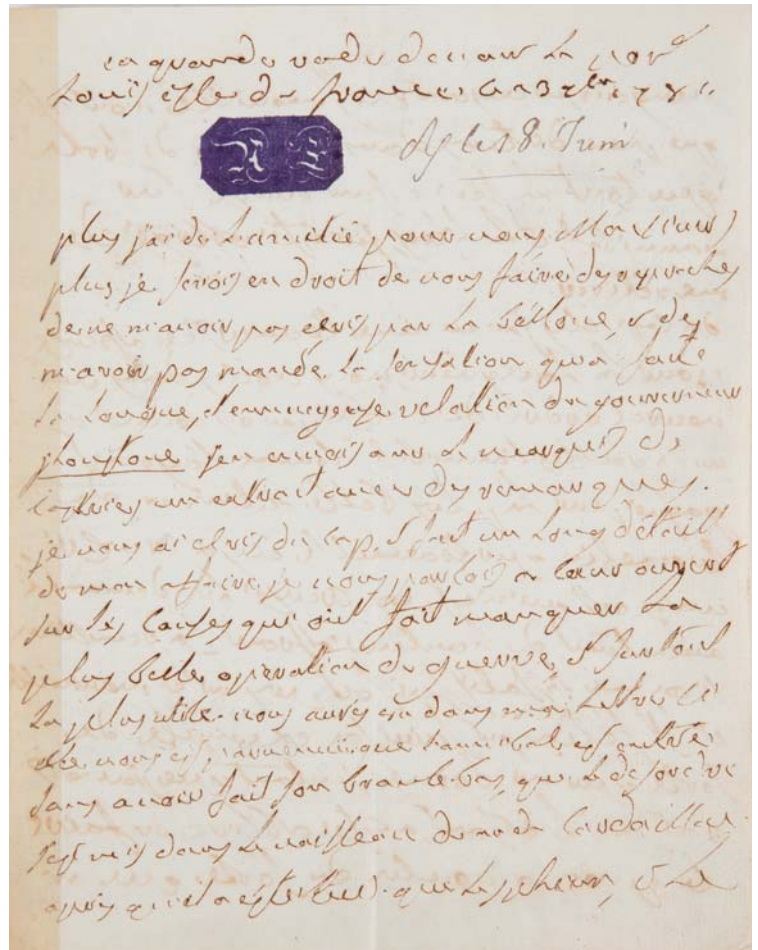 en rade du port
Louis isle de france, le 3 1781.
le 18. Juni
plus j'ai de L'amitié pour vous Monsieur,
plus je serois en droit de vous faire des reproches
de ne m'avoir pas ecris par La béllone, & de
m'avoir pas mandé La sensation qu'a faite
La Longue, & ennuyeuse relation du gouverneur
jhonstone j'en envois au Marquis de
Castries un extrait avec des remarques.
je vous ai écris du cap, & fait un Long détail
de mon affaire je vous parlois a Coeur ouvert
sur les causes qui ont fait manquer La
plus belle operation de guerre, & surtout
La plus utile. vous aurés vu dans ma Lettre
si elle vous est parvenue que L'annibal est entré
sans avoir fait son branlebas, que Le desordre
s'est mis dans Le vaisseau de m. de Cardaillac
après qu'il a esté tué. que Le sphinx, & Le